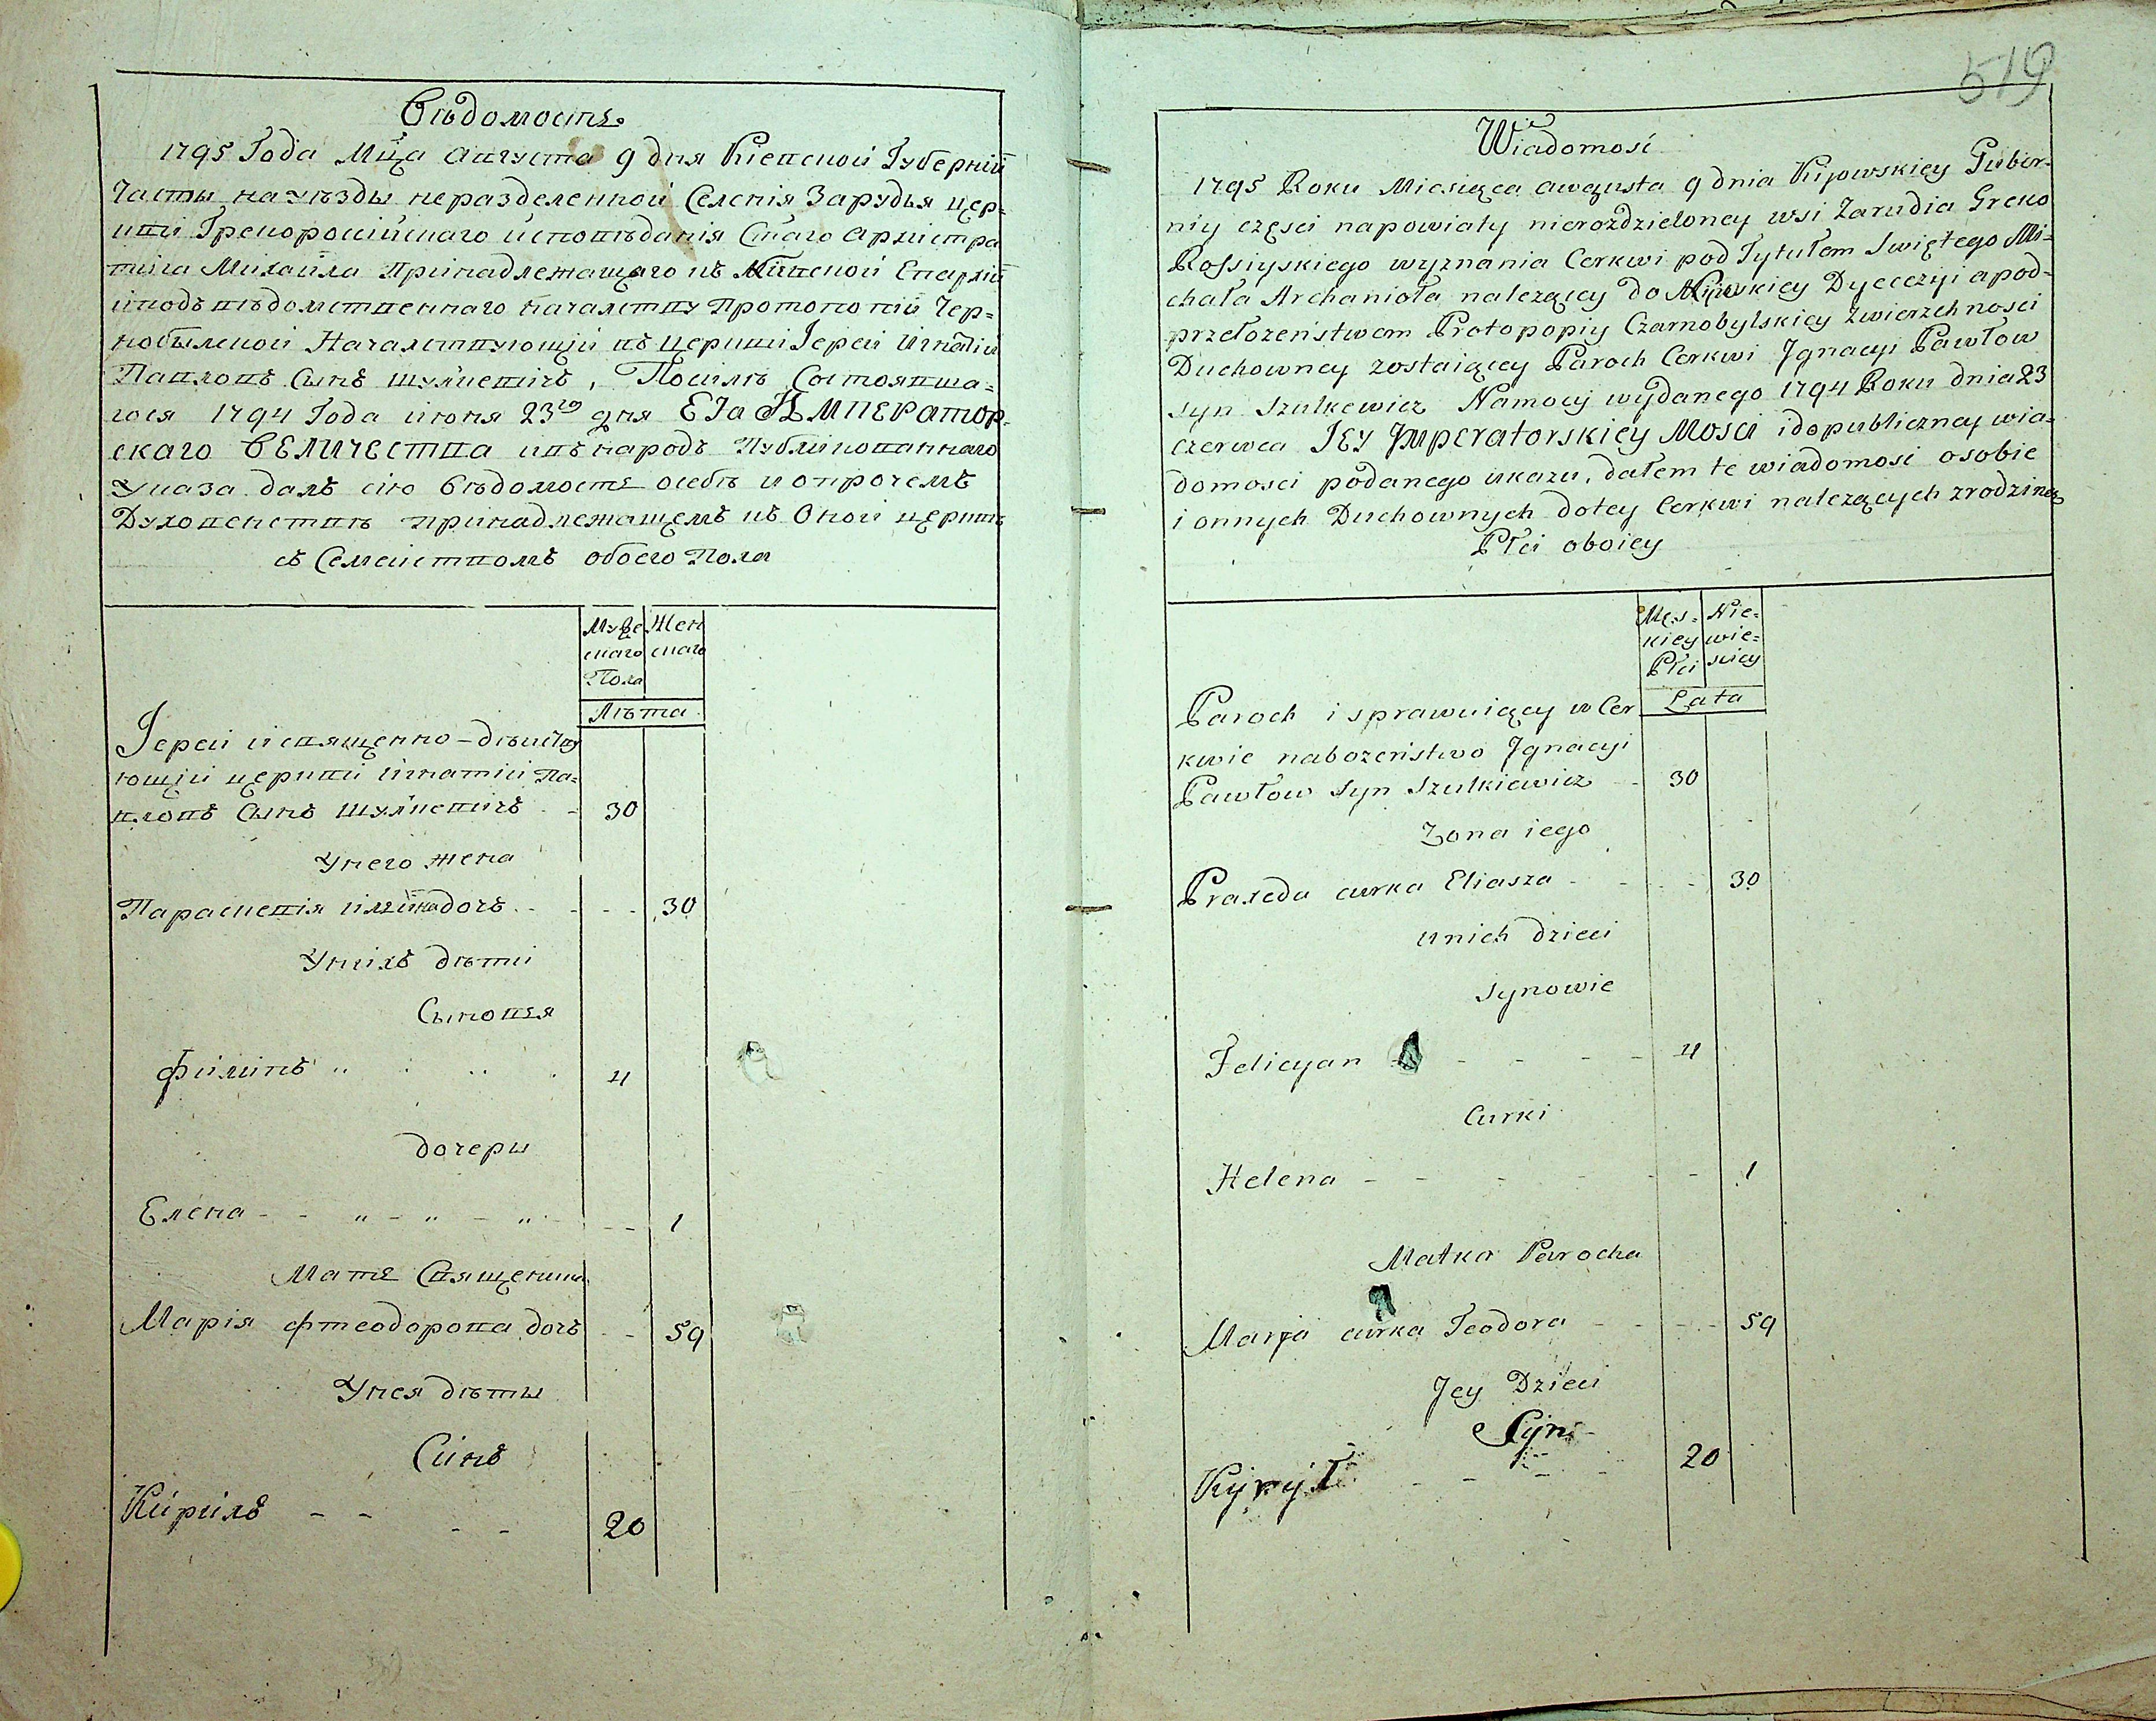 Вѣдомость
1795 Года Мца Августа 9 дня Кіевской Губерній
Часты на уѣзды неразделенной Селенія Зарудья цер=
кви Грекороссійскаго исповѣданія Стаго Архистра
тига Михаила принадлежащаго къ Епархій
и подъ вѣдомственнаго началству Протопопій Чер=
нобылской Началствующій въ церкви Іерей Игнатій
Павловъ Сынъ Шулкевичъ, По силѣ Состоявша=
гося 1794 Года июня 23го дня ЕЯ ИМПЕРАТОР
скаго ВЕЛИЧЕСТВА и въ народъ Публикованнаго
Указа далъ сію Вѣдомость о себѣ и о прочемъ
Духовенствѣ принадлежащемъ къ Оной церквѣ
съ Семействомъ обоего Пола
Муже Жен
скаго скаго
Пола
Лѣта
Іерей и священно-дѣйству
ющій церкви Игнатій Па=
вловъ Сынъ Шулкевичъ - 30
У него жена
Параскевія дочь - - - 30
У нихъ дѣти
Сыновья
Филипъ 4
дочеры
Елена - - - - - 1
Мать Священика
Марія Фтеодорова дочь - - 59
У нея дѣты
Синъ
Кирилъ - - - - 20
519
Wiadomosi
1795 Roku Miesiąca Awgusta 9 dnia Kijowskiey Guber-
niy częsci napowiaty nierozdzieloney wsi Zarudia Greko
Rossiyskiego wyznania Cerkwi pod Tytułem Swiętego Mi=
chała Archanioła nalezącey do Dyecezyi a pod-
przełozeństwem Protopopiy Czarnobylskiey zwierzchnosci
Duchowney zostaiącey Paroch Cerkwi Jgnacyi Pawłow
syn Szulkewicz Namocy wydanego 1794 Roku dnia 23
Czerwca JEY Jmperatorskiey Mosci i dopubliczney wia=
domosci podanego ukazu, dałem te wiadomosi osobie
i onnych Duchownych dotey Cerkwi nalezących zrodziną
Płci oboiey
Męs- Nie-
kiey wie=
Płci sciey
Lata
Paroch i sprawuiący w Cer
kwie nabozeństwo Jgnacyi
Pawłow Syn Szulkiewicz - 30
Zona iego
Praxeda curka Eliasza - - - 30
unich dzieci
synowie
Felicyan - - - - 4
Curki
Helena - - - - - 1
Matka Parocha
Marja curka Teodora - - - 59
Jey Dzieci
Syn
Kyrył - - - - 20